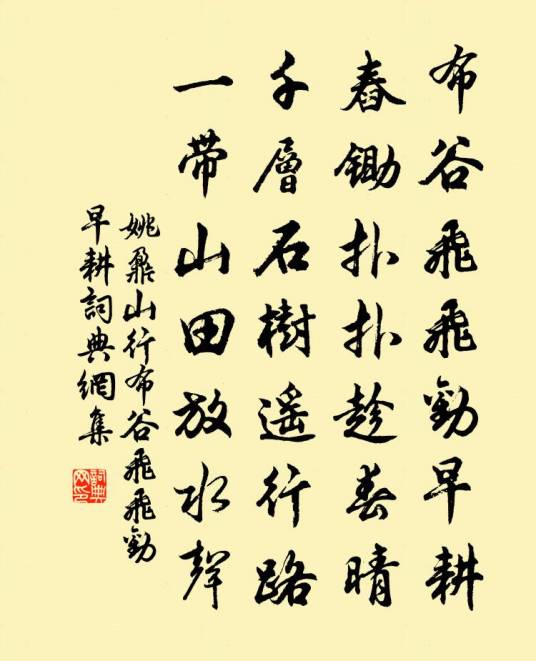 布谷飛飛勸早耕
舂鋤扑扑趁春晴
千層石樹遥行路
一帶山田放水聲
姚鼐山行布谷飛飛勸
早耕詞典網集